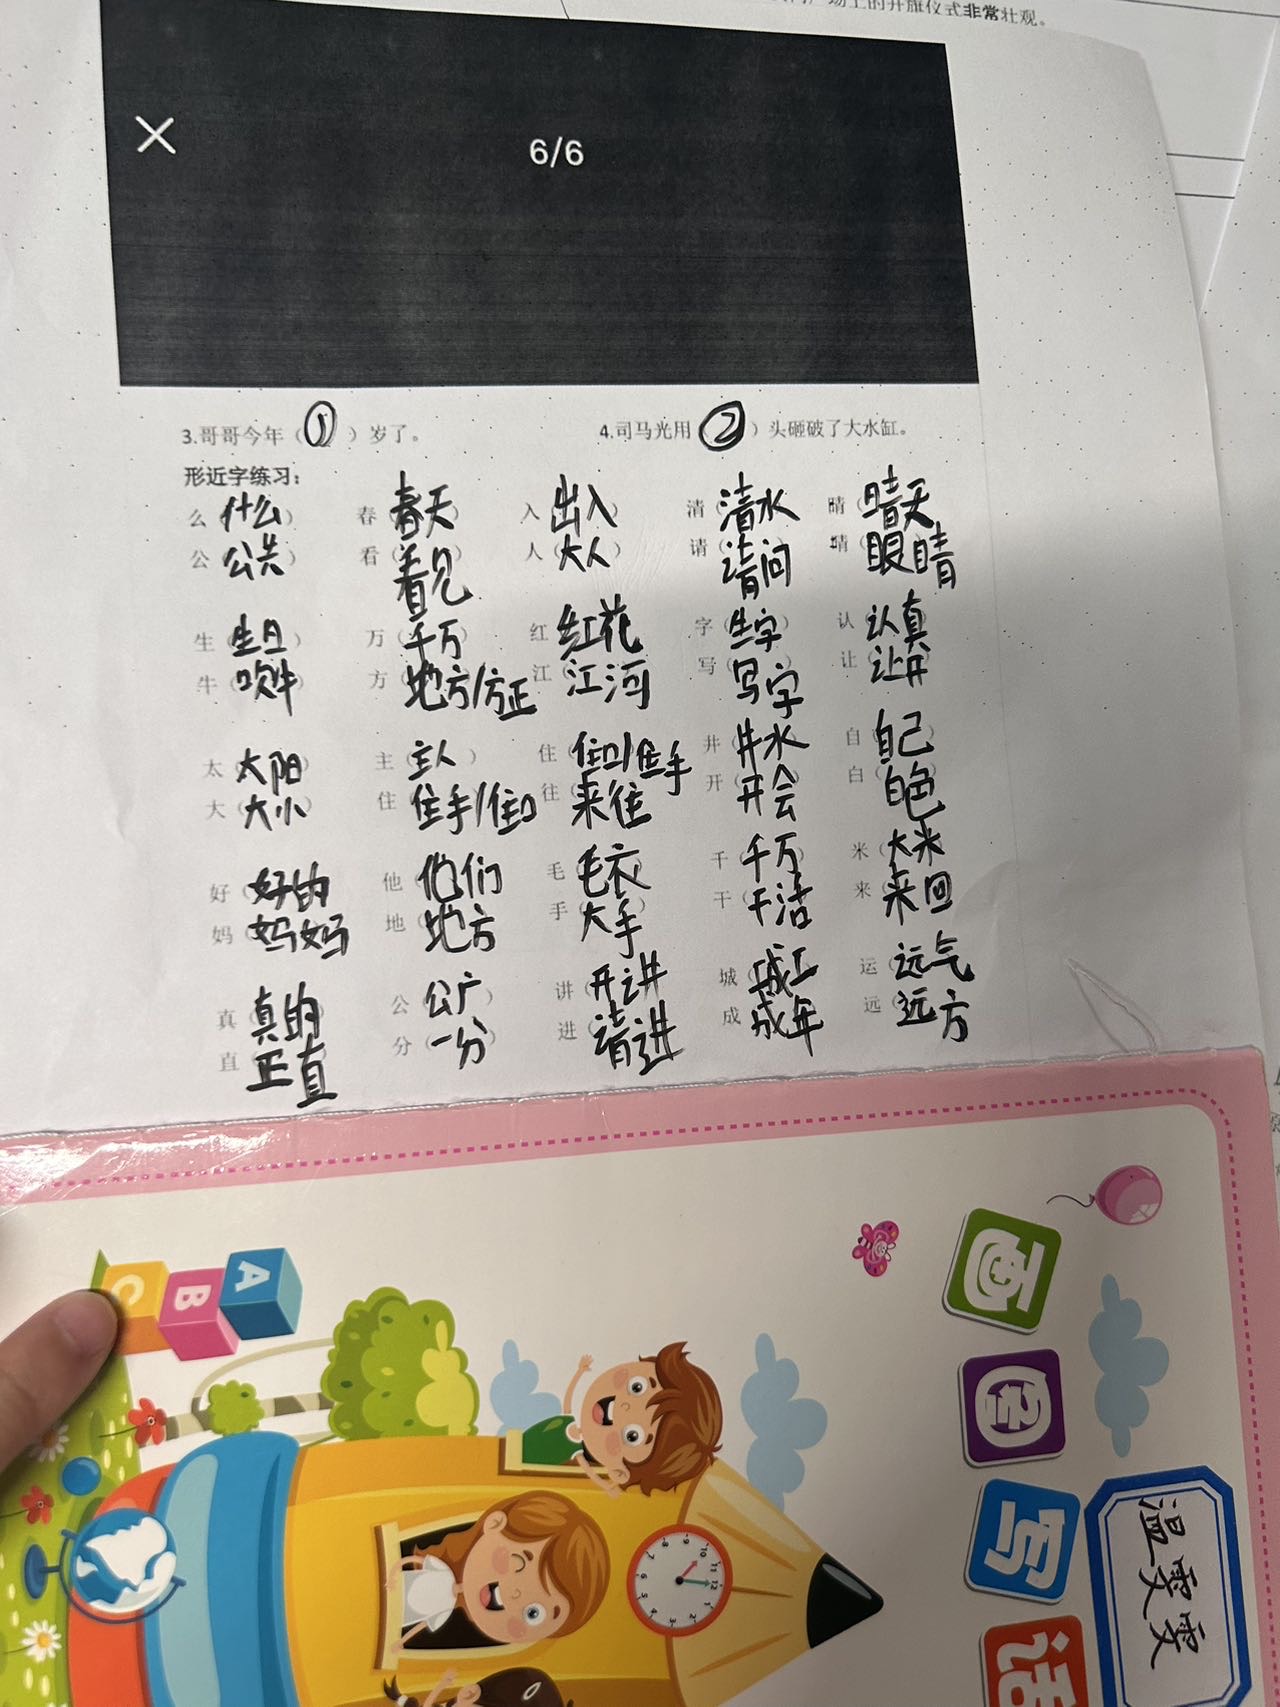 场上的升旗仪式非常壮观。
6/6
3.哥哥今年（①）岁了。 4.司马光用（②）头砸破了大水缸。
形近字练习：
么（什么） 春（春天） 入（出入） 清（清水） 晴（晴天）
公（公共） 看（看见） 人（大人） 请（请问） 睛（眼睛）
生（生日） 万（千万） 红（红花） 字（生字） 认（认真）
牛（吹牛） 方（地方/方正） 江（江河） 写（写字） 让（让开）
太（太阳） 主（主人） 住（住口/住手） 井（井水） 自（自己）
大（大小） 住（住手/住口） 往（来往） 开（开会） 白（白色）
好（好的） 他（他们） 毛（毛衣） 千（千万） 米（大米）
妈（妈妈） 地（地方） 手（大手） 干（干洁） 来（来回）
真（真的） 公（公广） 讲（开讲） 城（城工） 运（远气）
直（正直） 分（一分） 进（请进） 成（成年） 远（远方）
A
B
C
画
写
话
温雯雯